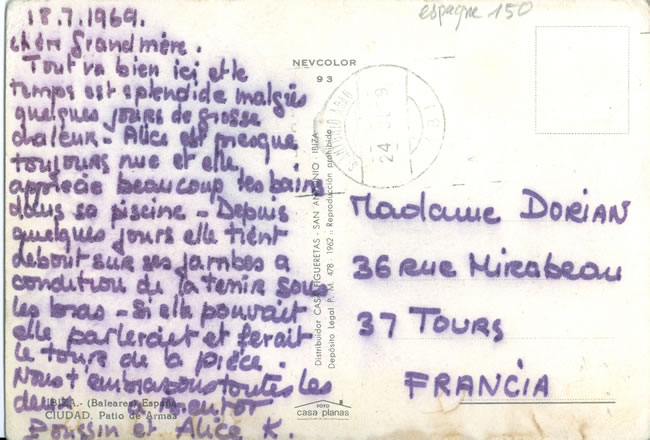 18.7.1969.
chère grandmère.
Tout va bien ici et le
temps est splendide malgrés
quelques jours de grosse
chaleur - Alice est presque
toujours nue et elle
apprécie beaucoup les bains
dans sa piscine - Depuis
quelques jours elle tient
debout sur ses jambes a
condition de la tenir sous
les bras - Si elle pouvait
elle parlerait et ferait
le tour de la pièce.
Nous t'embrassons toutes les
deux
Poussin et Alice K.
IBIZA.- (Baleares) España
CIUDAD. Patio de Armas
espagne 150
NEVCOLOR
93
Distribuidor CASA FIGUERETAS - SAN ANTONIO IBIZA
Depósito Legal P. M. 478 - 1962 :: Reproducción prohibida
FOTO
casa planas
Madame DORIAN
36 rue Mirabeau
37 TOURS
FRANCIA